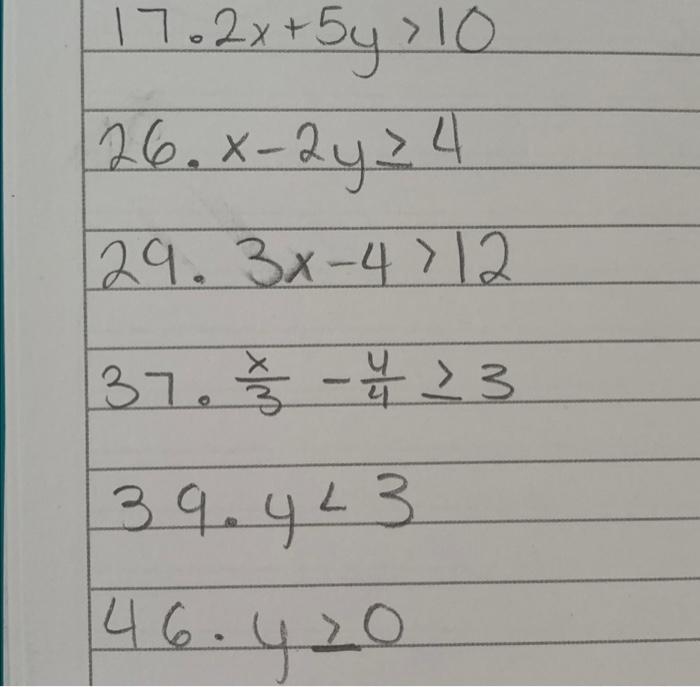 17. 2x+5y>10
26. x-2y≥4
29. 3x-4>12
37. x/3 - y/4 ≥ 3
39. y<3
46. y≥0